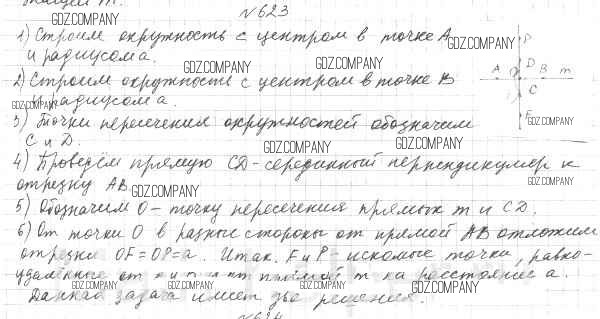 №623
GDZ.COMPANY
1) Строим окружность с центром в точке А
GDZ.COMPANY
и радиусом а.
GDZ.COMPANY GDZ.COMPANY
P
D
A O B m
C
F
2) Строим окружность с центром в точке В
GDZ.COMPANY
и радиусом а.
GDZ.COMPANY
3) Точки пересечения окружностей обозначим
С и D.
GDZ.COMPANY GDZ.COMPANY
4) Проведём прямую CD-серединный перпендикуляр к
отрезку АВ
GDZ.COMPANY GDZ.COMPANY
5) Обозначим О-точку пересечения прямых m и CD.
6) От точки О в разные стороны от прямой АВ отложим
отрезки OF=OP=a. Итак, F и P искомые точки, равно-
удалённые от прямой m на расстояние а.
GDZ.COMPANY GDZ.COMPANY GDZ.COMPANY GDZ.COMPANY
Данная задача имеет два решения.
№624